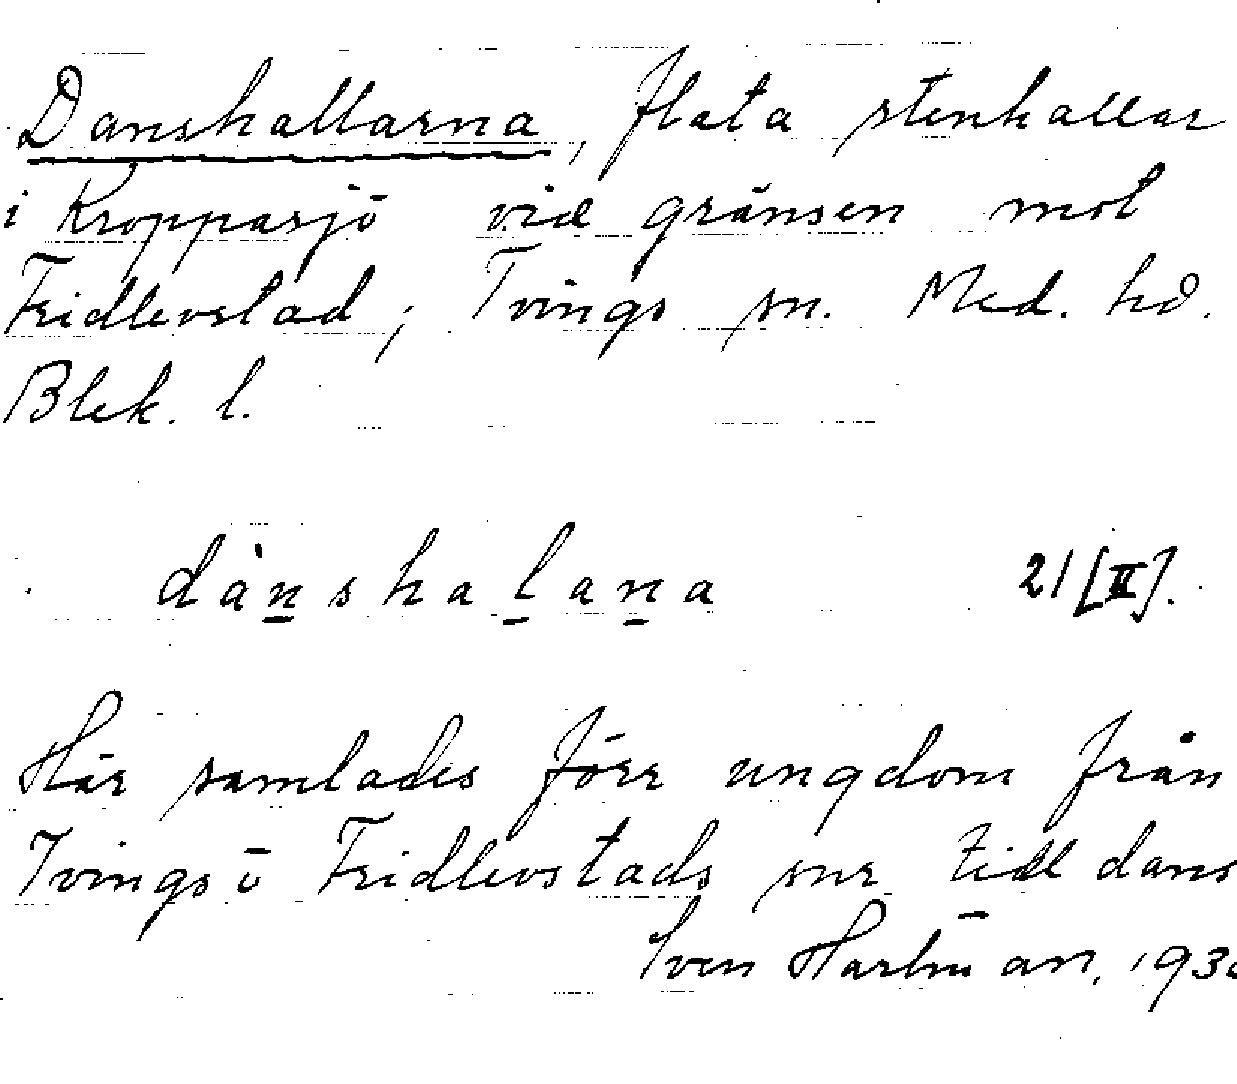 Danshallarna, flata stenhallar
i Kroppasjö vid gränsen mot
Fridlevstad, Tvings sn. Med. hd.
Blek. l.
dànshalana 21/[II].
Här samlades förr ungdom från
Tvings o Fridlevstads snr till dans
Sven Hartman, 193